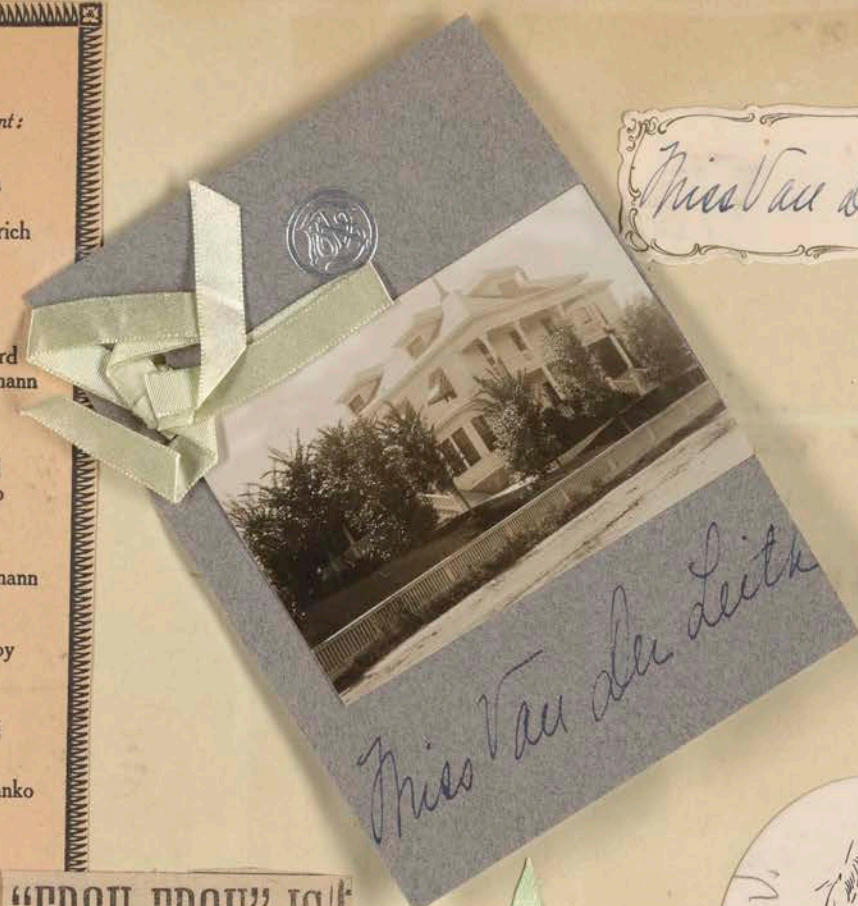 nt:
rich
rd
mann
mann
oy
nko
Miss Van d
Miss Van der Leith
"FROU FROU" IS